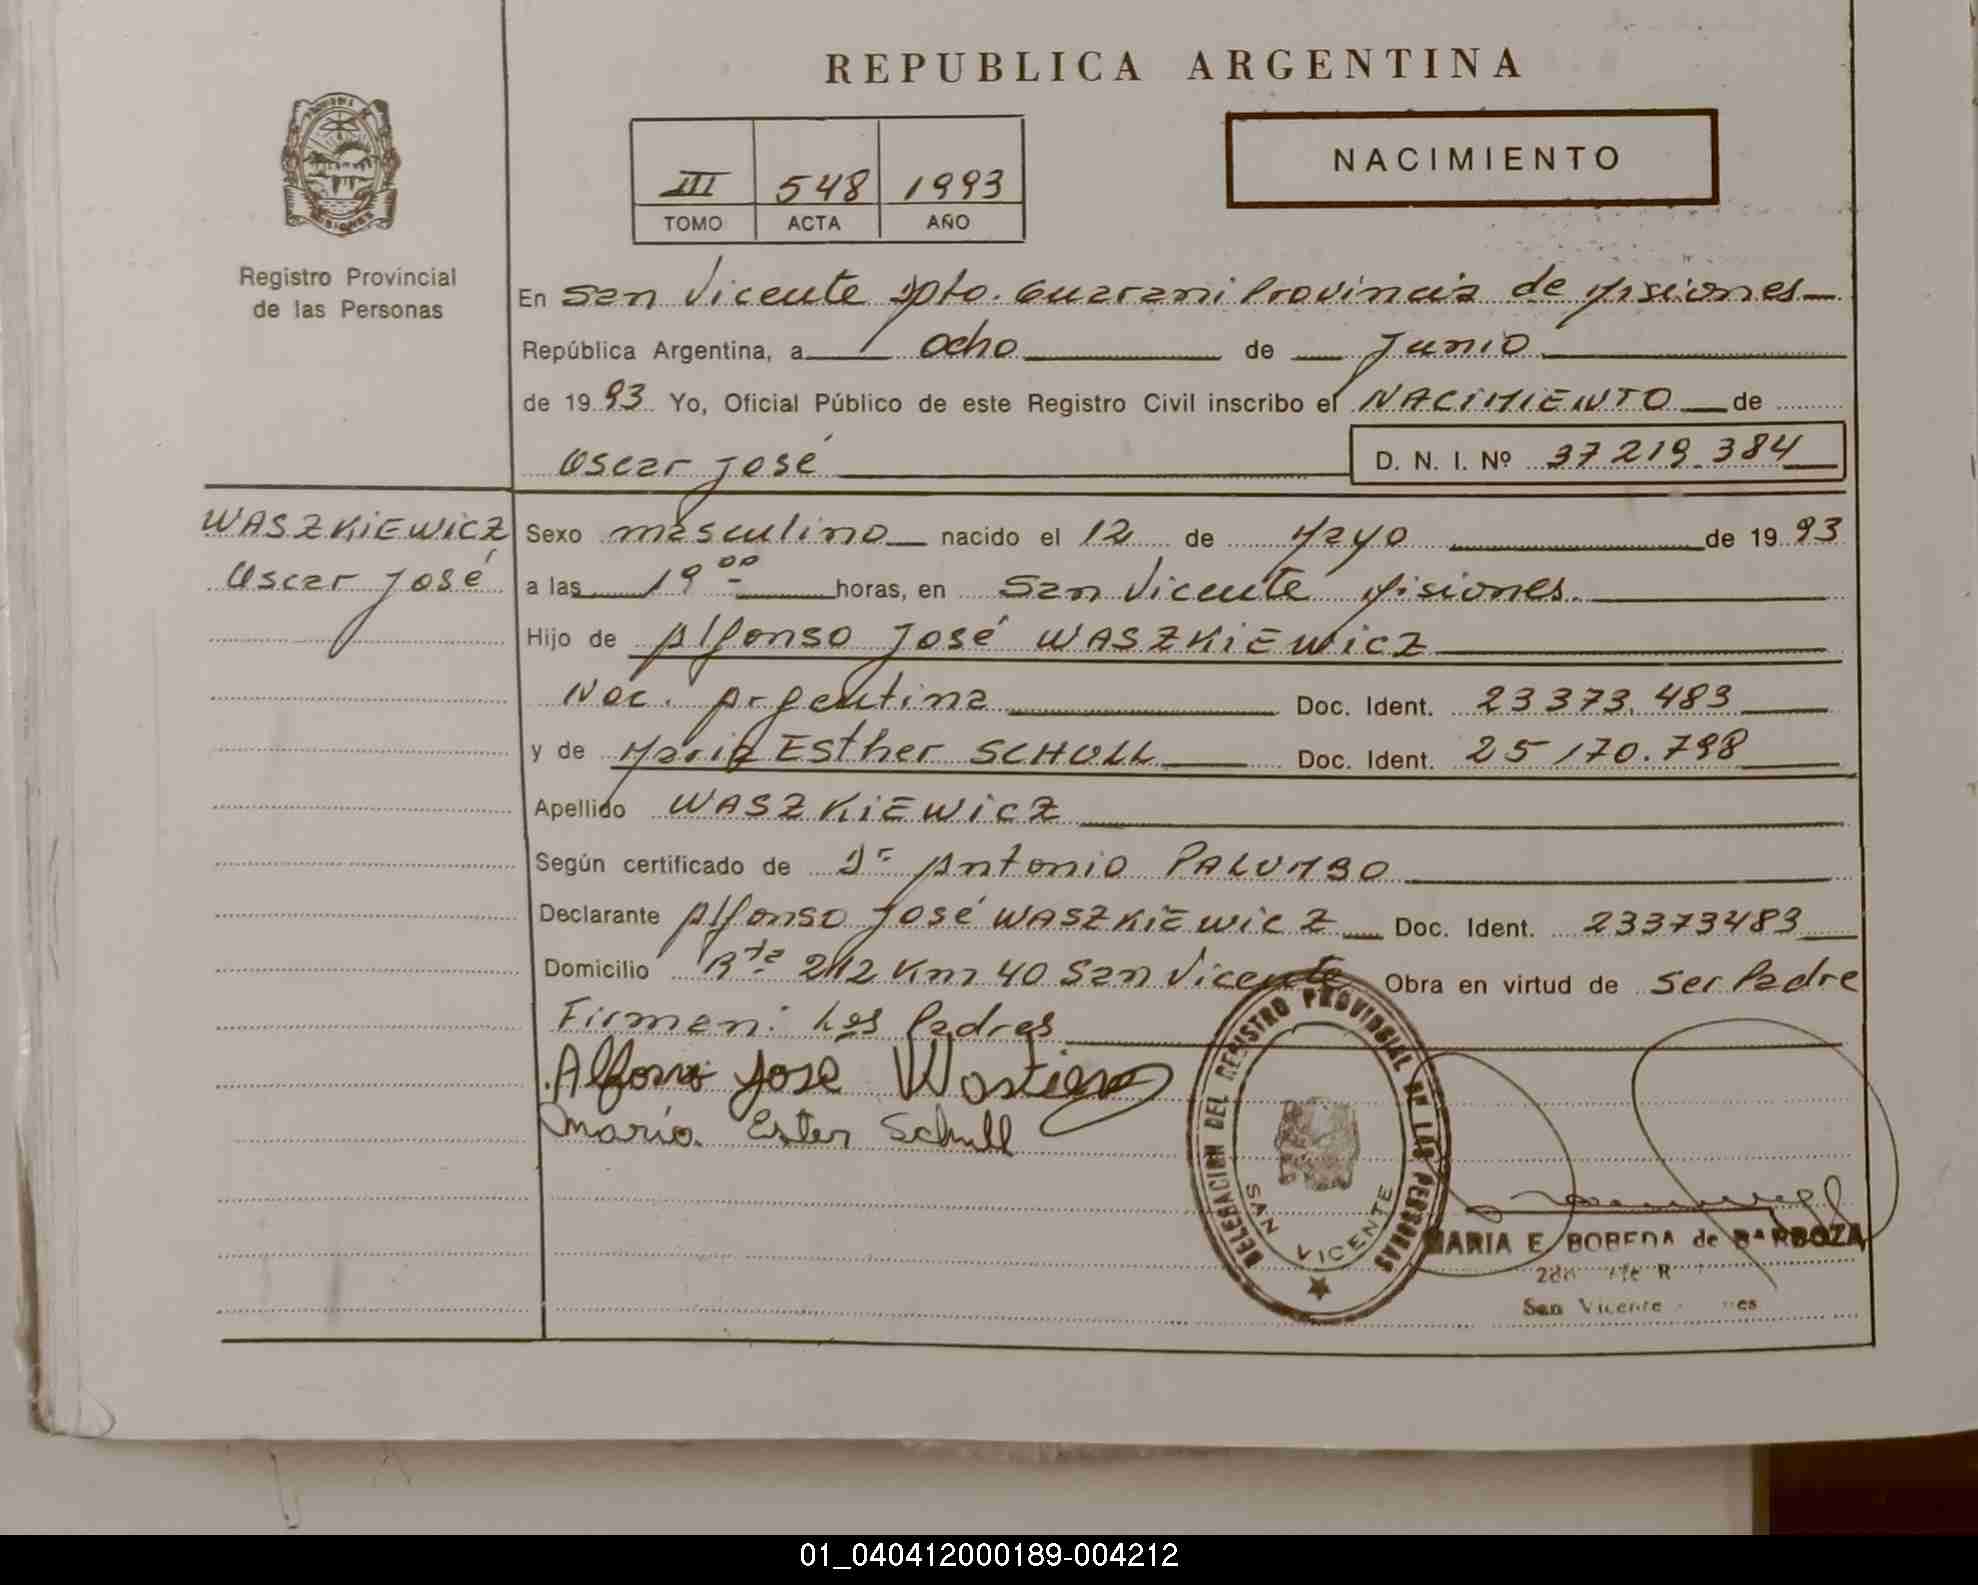 REPUBLICA ARGENTINA
III 548 1993
TOMO ACTA AÑO
NACIMIENTO
Registro Provincial
de las Personas
En San Vicente Dpto. Guarani Provincia de Misiones
República Argentina, a ocho de Junio
de 1993 Yo, Oficial Público de este Registro Civil inscribo el NACIMIENTO de
Oscar José D. N. I. Nº 37 219.384
WASZKiEWiCZ
Oscar José
Sexo masculino nacido el 12 de Mayo de 1993
a las 19 00 horas, en San Vicente Misiones.
Hijo de Alfonso José WASZKiEWiCZ
Nac. Argentina Doc. Ident. 23373.483
y de Maria Esther SCHOLL Doc. Ident. 25 170.798
Apellido WASZKiEWiCZ
Según certificado de Dr Antonio PALUMBO
Declarante Alfonso José WASZKiEWiCZ Doc. Ident. 23373483
Domicilio Rta 212 Km 40 San Vicente Obra en virtud de ser Padre
Firman: Los Padres
Alfonso Jose
Maria Ester Schull
DELEGACION DEL REGISTRO PROVINCIAL DE LAS PERSONAS
SAN VICENTE
MARIA E BOBEDA de BARBOZA
San Vicente
01_040412000189-004212